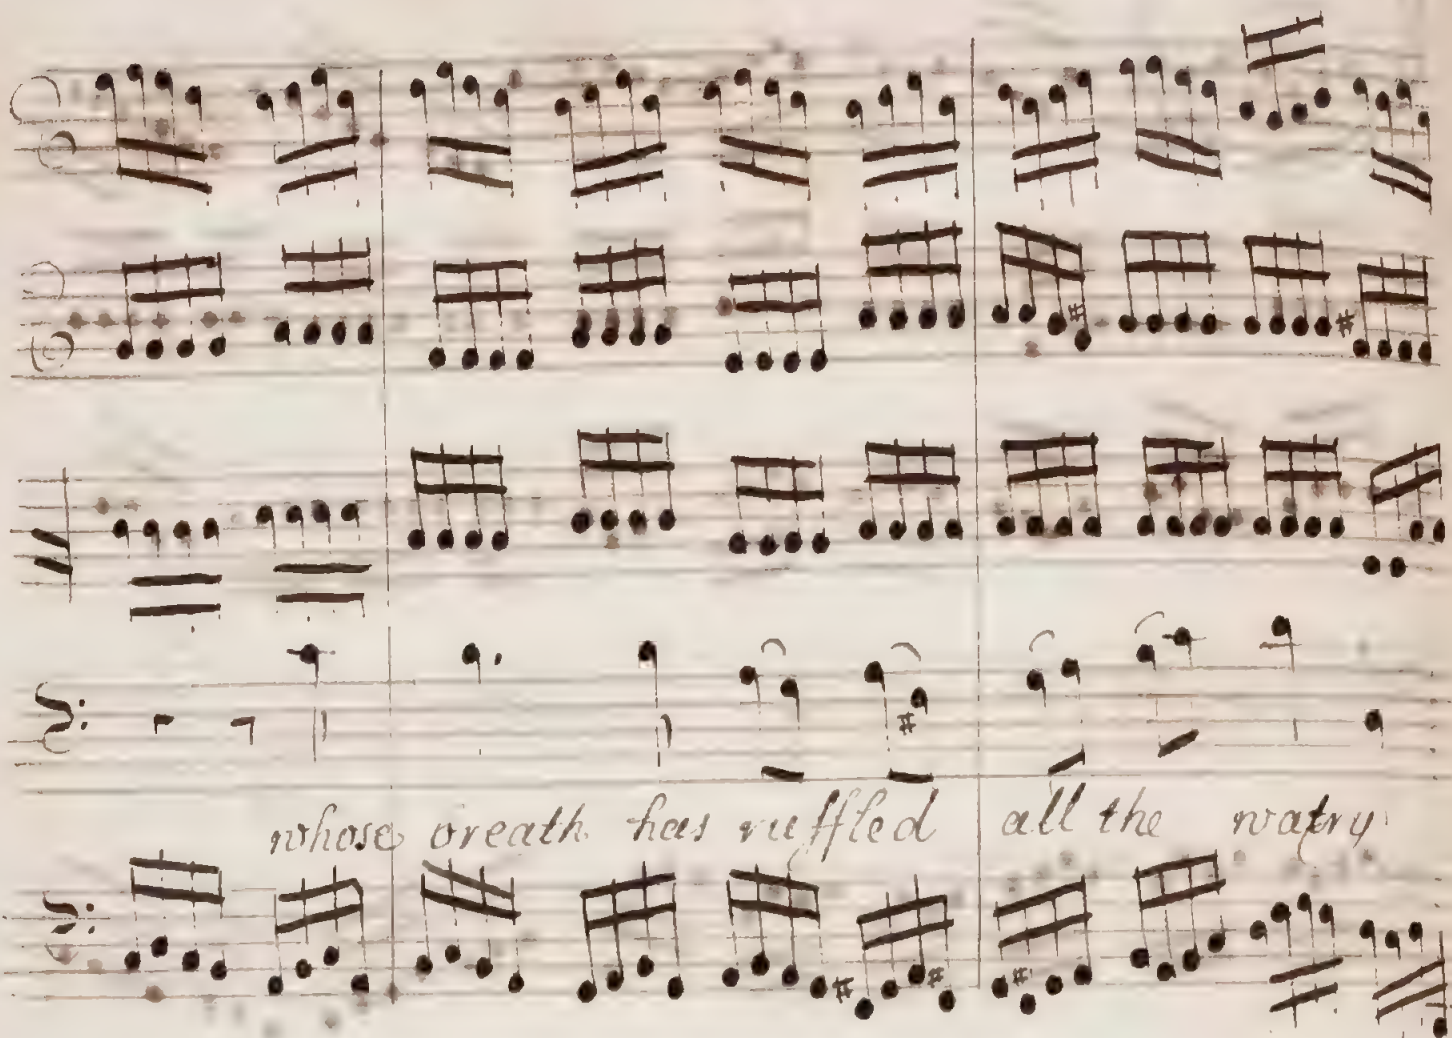 whose breath has ruffled all the watry